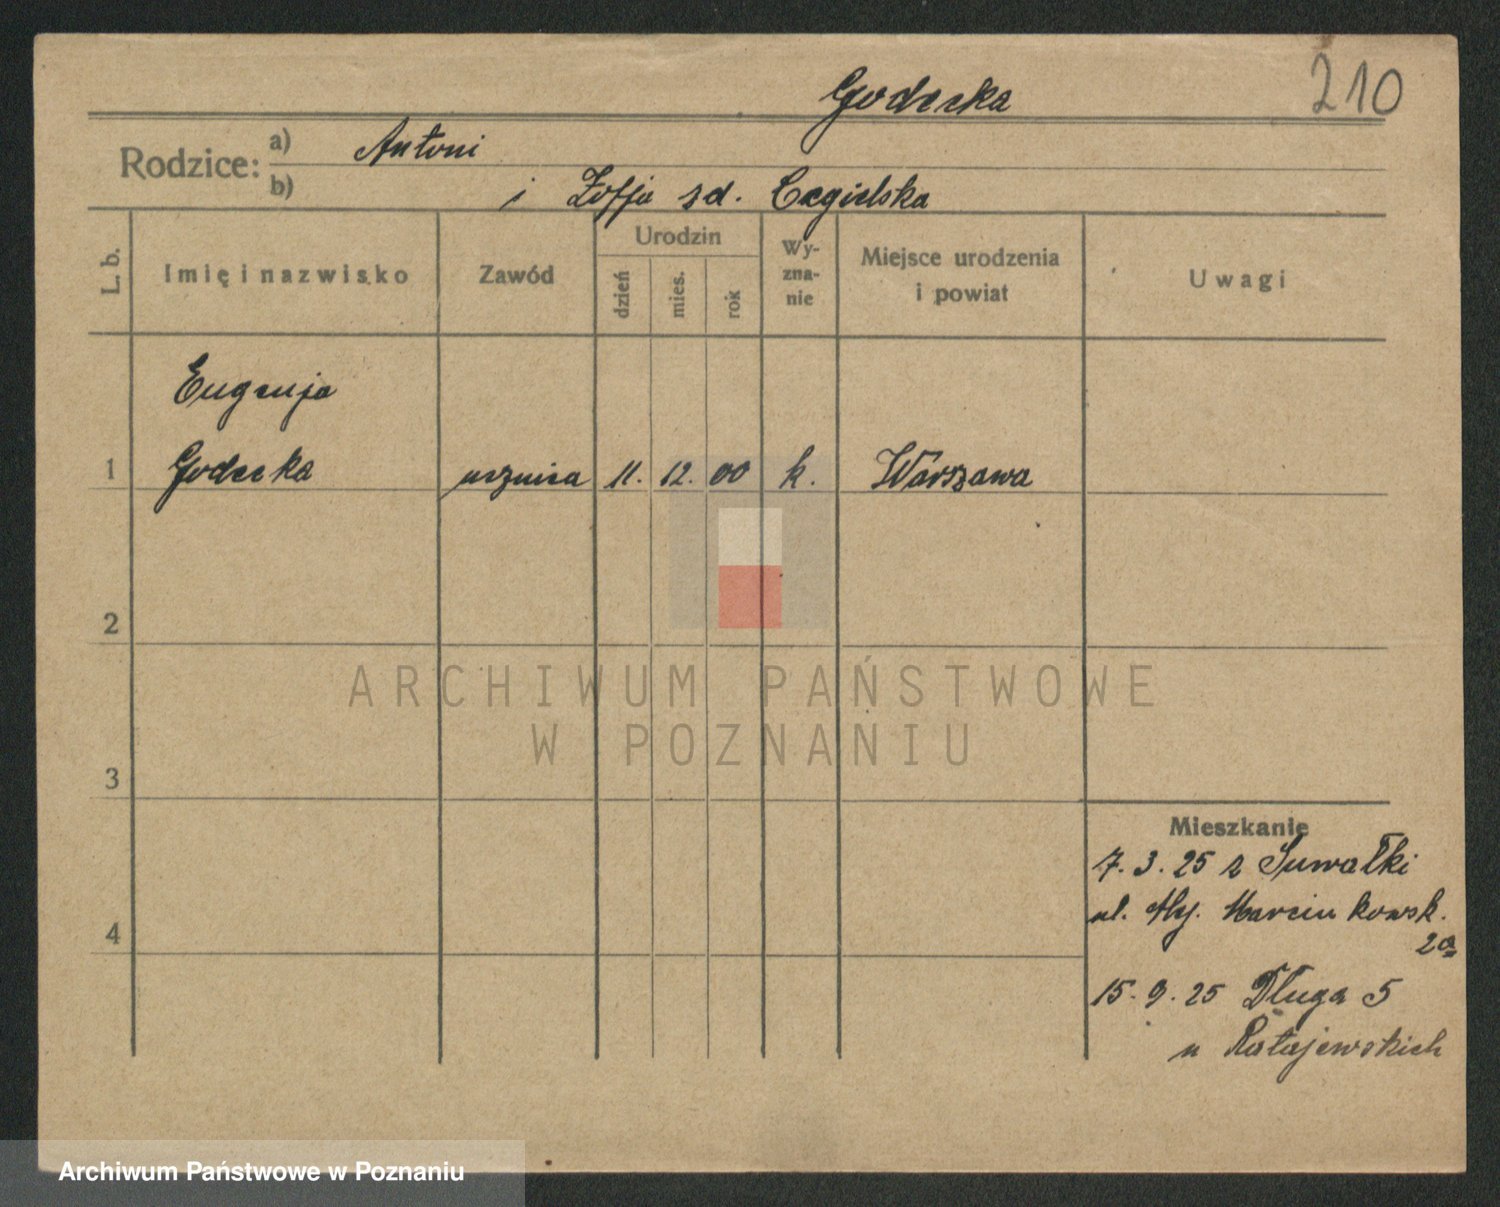 Godecka
210
Rodzice:
a) Antoni
b) i Zofja zd. Cegielska
L. b.
Imię i nazwisko
Zawód
Urodzin
dzień
mies.
rok
Wy-
zna-
nie
Miejsce urodzenia
i powiat
Uwagi
Eugenja
1 Godecka ucznica 11. 12. 00 k. Warszawa
2
3
4
ARCHIWUM PAŃSTWOWE
W POZNANIU
Mieszkanie
7. 3. 25 z Suwałki
ul. Marcinkowsk.
20
15. 9. 25 Długa 5
u Ratajewskich
Archiwum Państwowe w Poznaniu